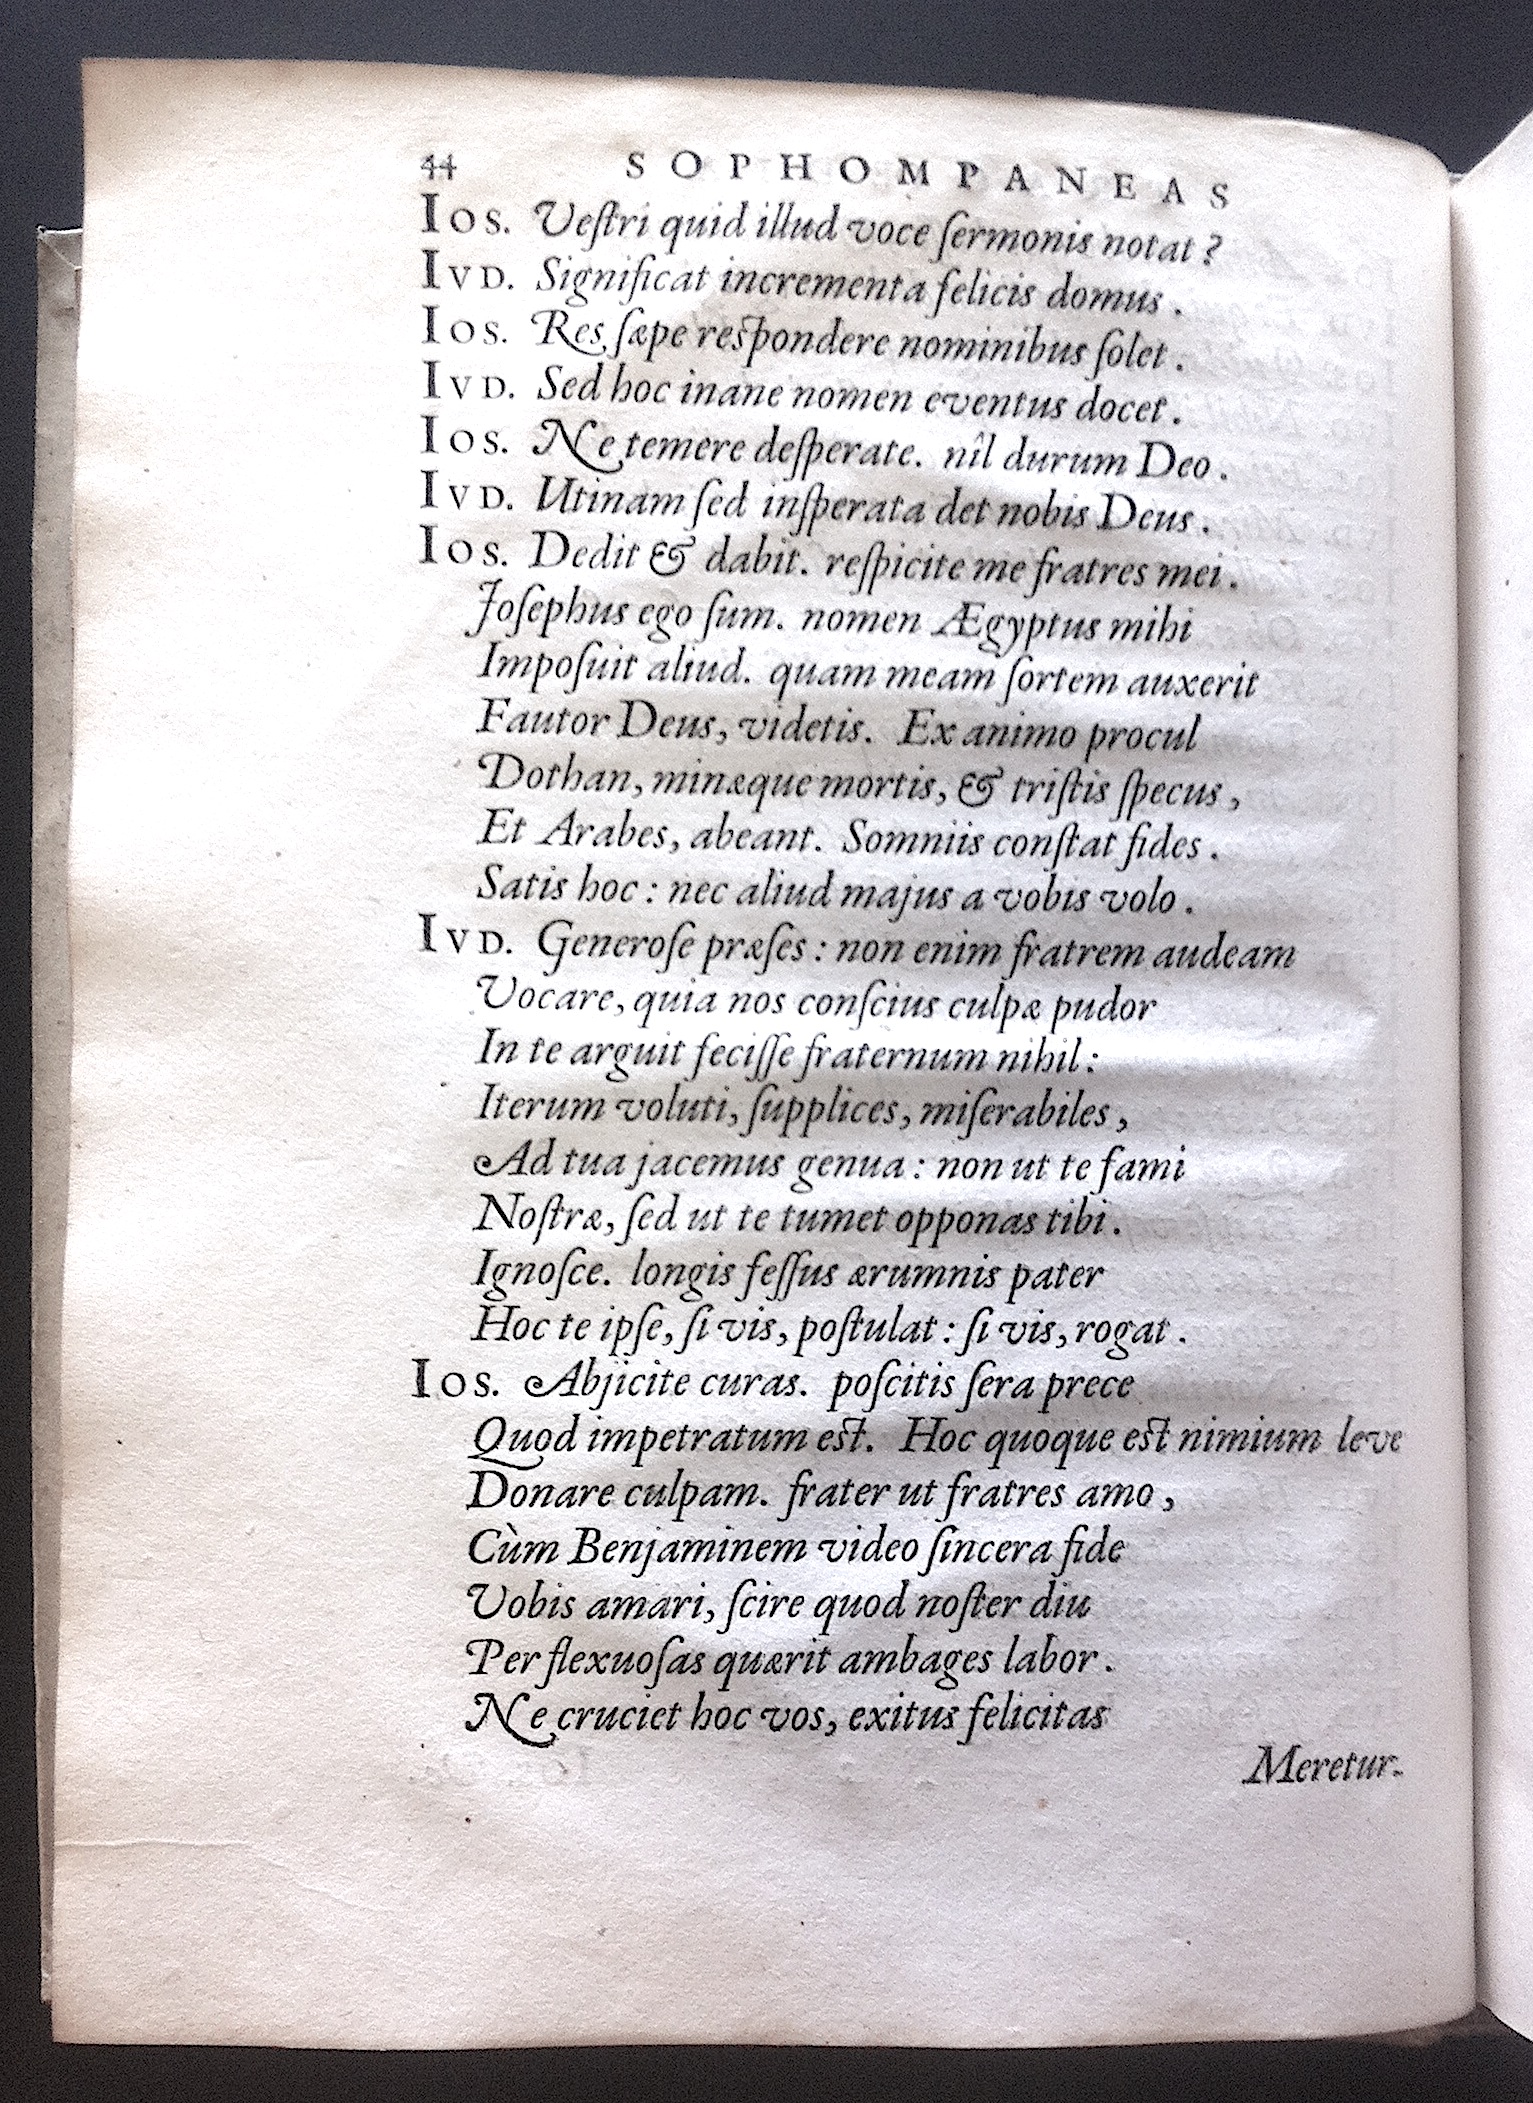 44 SOPHOMPANEAS
Ios. Veſtri quid illud voce ſermonis notat?
Ivd. Significat incrementa felicis domus.
Ios. Res ſæpe reſpondere nominibus ſolet.
Ivd. Sed hoc inane nomen eventus docet.
Ios. Ne temere deſperate. nîl durum Deo.
Ivd. Utinam ſed inſperata det nobis Deus.
Ios. Dedit & dabit. reſpicite me fratres mei.
Joſephus ego ſum. nomen Ægyptus mihi
Impoſuit aliud. quam meam ſortem auxerit
Fautor Deus, videtis. Ex animo procul
Dothan, minæque mortis, & triſtis ſpecus,
Et Arabes, abeant. Somniis conſtat fides.
Satis hoc: nec aliud majus a vobis volo.
Ivd. Generoſe præſes: non enim fratrem audeam
Vocare, quia nos conſcius culpæ pudor
In te arguit feciſſe fraternum nihil:
Iterum voluti, ſupplices, miſerabiles,
Ad tua jacemus genua: non ut te fami
Noſtræ, ſed ut te tumet opponas tibi.
Ignoſce. longis feſſus ærumnis pater
Hoc te ipſe, ſi vis, poſtulat: ſi vis, rogat.
Ios. Abjicite curas. poſcitis ſera prece
Quod impetratum eſt. Hoc quoque eſt nimium leve
Donare culpam. frater ut fratres amo,
Cùm Benjaminem video ſincera fide
Vobis amari, ſcire quod noſter diu
Per flexuoſas quærit ambages labor.
Ne cruciet hoc vos, exitus felicitas
Meretur.